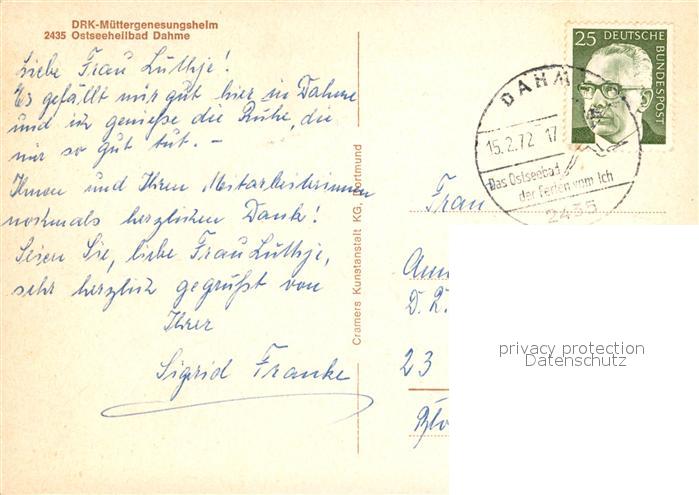 DRK-Müttergenesungsheim
2435 Ostseeheilbad Dahme
Liebe Frau Lüthje!
Es gefällt mir gut hier in Dahme
und ich genieße die Ruhe, die
mir so gut tut. -
Ihnen und Ihren Mitarbeiterinnen
nochmals herzlichen Dank!
Seien Sie, liebe Frau Lüthje,
sehr herzlich gegrüßt von
Ihrer
Sigrid Franke
Cramers Kunstanstalt KG, Dortmund
25 DEUTSCHE
BUNDESPOST
DAHM
15.2.72 17
Das Ostseebad
der Ferien vom Ich
2435
Frau
D. R.
23
privacy protection
Datenschutz